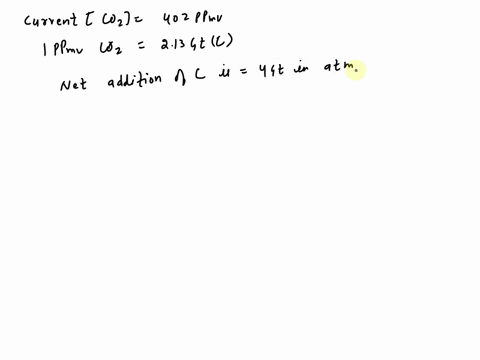 current [CO2] = 402 PPmv
1 PPmv CO2 = 2.13 Gt (C)
Net addition of C is = 4 Gt in atm.